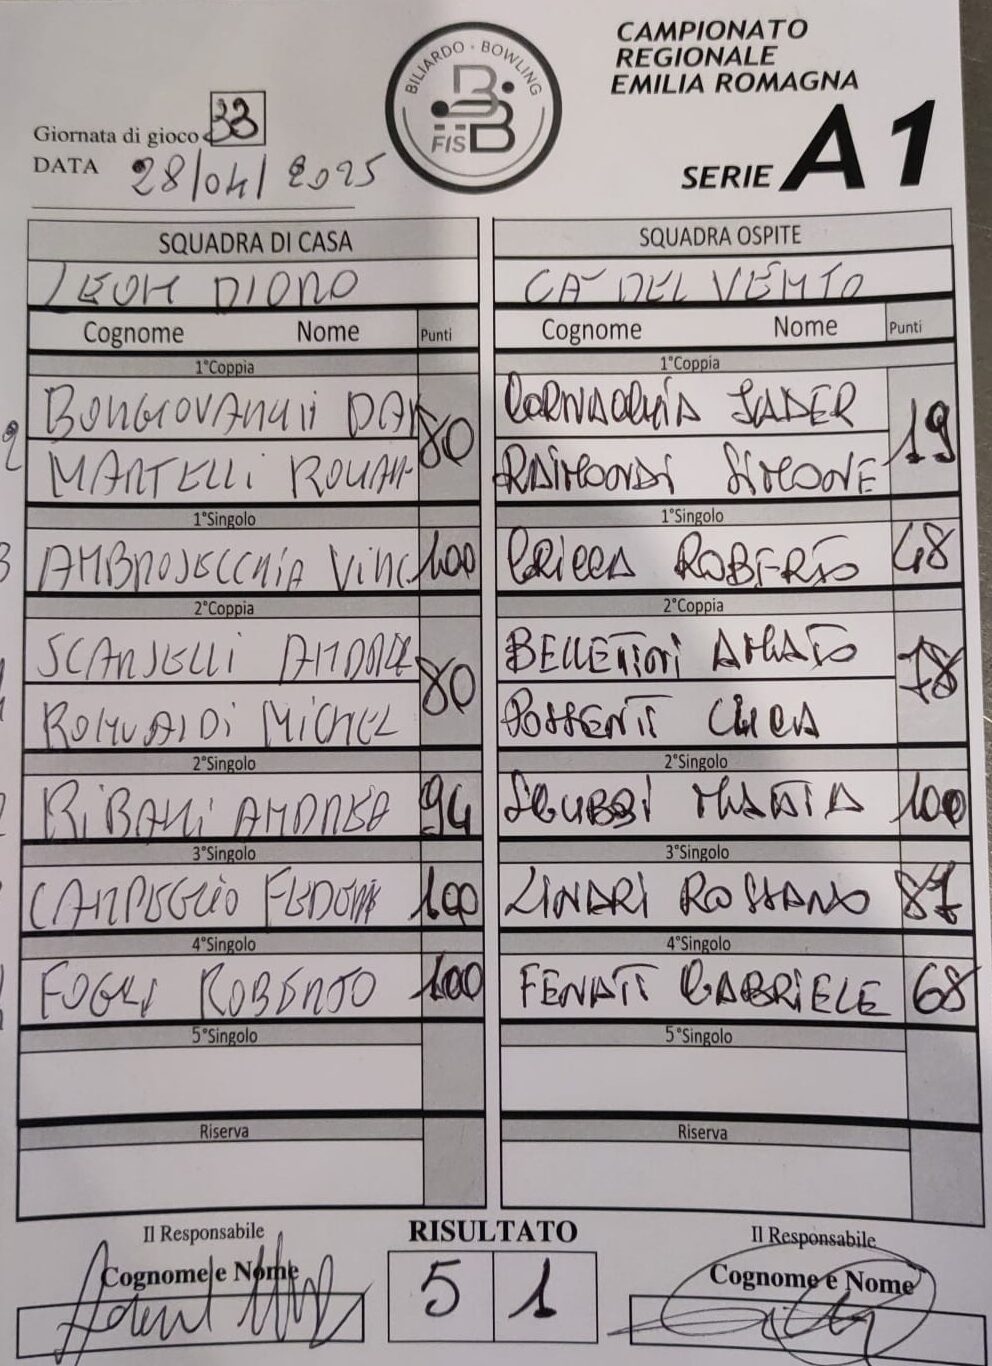 CAMPIONATO
REGIONALE
EMILIA ROMAGNA
SERIE A1
BILIARDO · BOWLING
FISBB
Giornata di gioco 33
DATA 28/04/2025
SQUADRA DI CASA SQUADRA OSPITE
LEON D'ORO CA' DEL VENTO
Cognome Nome Punti Cognome Nome Punti
1°Coppia 1°Coppia
BONGIOVANNI DA 80 CORNACCHIA JADER 19
MARTELLI RAIMONDI SIMONE
1°Singolo 1°Singolo
AMBROSECCHIA VINC. 100 CRICCA ROBERTO 48
2°Coppia 2°Coppia
SCANSELLI ANDREA 80 BELLETTINI AMATO 78
ROMUALDI MICHEL POSSENTI LUCA
2°Singolo 2°Singolo
RIBANI ANDREA 94 SGUBBI MATTIA 100
3°Singolo 3°Singolo
CAMPEGGIO 100 LINARI ROSSANO 87
4°Singolo 4°Singolo
FOGLI ROBERTO 100 FENATI GABRIELE 68
5°Singolo 5°Singolo
Riserva Riserva
Il Responsabile RISULTATO Il Responsabile
Cognome e Nome 5 1 Cognome e Nome